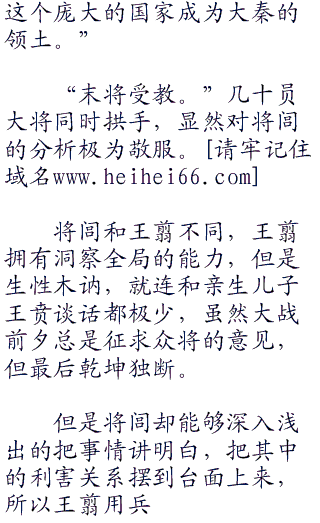 这个庞大的国家成为大秦的
领土。”
“末将受教。”几十员
大将同时拱手，显然对将闾
的分析极为敬服。[请牢记住
域名www.heihei66.com]
将闾和王翦不同，王翦
拥有洞察全局的能力，但是
生性木讷，就连和亲生儿子
王贲谈话都极少，虽然大战
前夕总是征求众将的意见，
但最后乾坤独断。
但是将闾却能够深入浅
出的把事情讲明白，把其中
的利害关系摆到台面上来，
所以王翦用兵